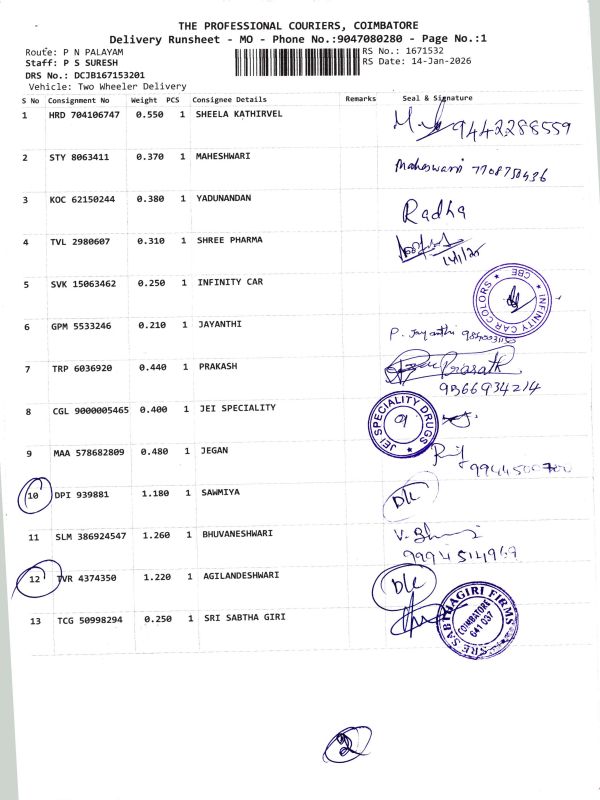 THE PROFESSIONAL COURIERS, COIMBATORE
Delivery Runsheet - MO - Phone No.:9047080280 - Page No.:1
Route: P N PALAYAM RS No.: 1671532
Staff: P S SURESH RS Date: 14-Jan-2026
DRS No.: DCJB167153201
Vehicle: Two Wheeler Delivery
S No Consignment No Weight PCS Consignee Details Remarks Seal & Signature
1 HRD 704106747 0.550 1 SHEELA KATHIRVEL 9442288559
2 STY 8063411 0.370 1 MAHESHWARI Maheswari 7708750436
3 KOC 62150244 0.380 1 YADUNANDAN Radha
4 TVL 2980607 0.310 1 SHREE PHARMA
5 SVK 15063462 0.250 1 INFINITY CAR INFINITY CAR COLORS ★ CBE ★
6 GPM 5533246 0.210 1 JAYANTHI P. Jayanthi
7 TRP 6036920 0.440 1 PRAKASH Prasath
9566934214
8 CGL 9000005465 0.400 1 JEI SPECIALITY JEI SPECIALITY DRUGS ★
9 MAA 578682809 0.480 1 JEGAN
10 DPI 939881 1.180 1 SAWMIYA DLC
11 SLM 386924547 1.260 1 BHUVANESHWARI
12 TVR 4374350 1.220 1 AGILANDESHWARI DLC
13 TCG 50998294 0.250 1 SRI SABTHA GIRI SRE SABTHAGIRI FIRMS ★ COIMBATORE 641 037
2